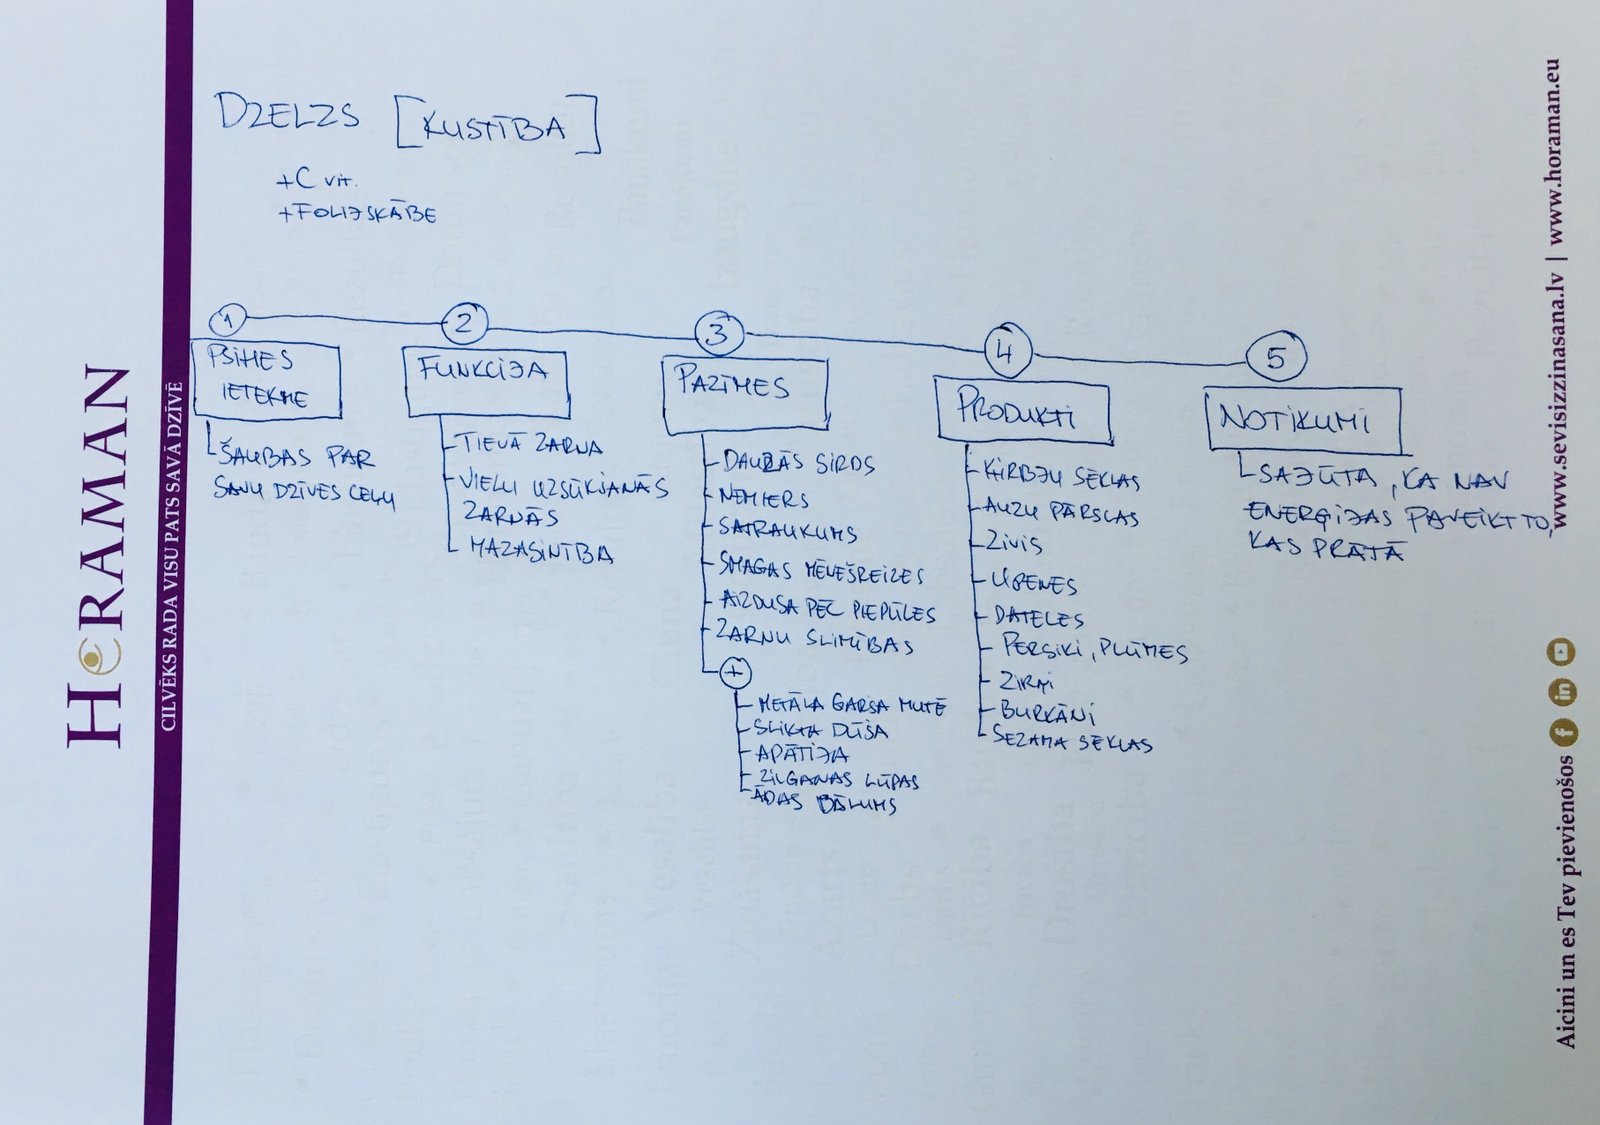 DZELZS [KUSTĪBA]
+C VIT.
+FOLIJSKĀBE
1
PSIHES
IETEKME
ŠAUBAS PAR
SAVU DZĪVES CEĻU
2
FUNKCIJA
TIEVĀ ZARNA
VIELU UZSŪKŠANĀS
ZARNĀS
MAZASINĪBA
3
PAZĪMES
DAUZĀS SIRDS
NEMIERS
SATRAUKUMS
SMAGAS MĒNEŠREIZES
AIZDUSA PĒC PIEPŪLES
ZARNU SLIMĪBAS
+
METĀLA GARSA MUTĒ
SLIKTA DŪŠA
APĀTIJA
ZILGANAS LŪPAS
ĀDAS BĀLUMS
4
PRODUKTI
ĶIRBJU SĒKLAS
AUZU PĀRSLAS
ZIVIS
UPENES
DATELES
PERSIKI, PLŪMES
ZIRŅI
BURKĀNI
SEZAMA SĒKLAS
5
NOTIKUMI
SAJŪTA, KA NAV
ENERĢIJAS PAVEIKT TO,
KAS PRĀTĀ
HORAMAN
CILVĒKS RADA VISU PATS SAVĀ DZĪVĒ
Aicini un es Tev pievienošos f in www.sevisizzinasana.lv | www.horaman.eu